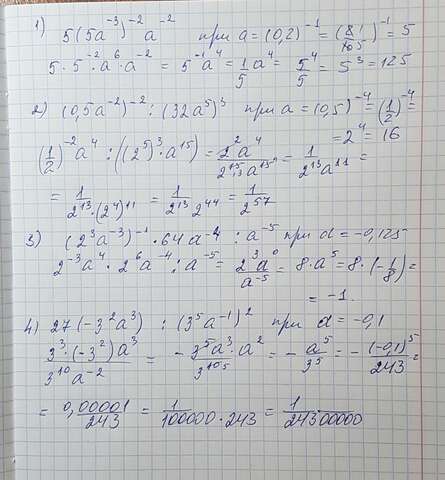 1) 5(5a⁻³)⁻² a⁻² при a = (0,2)⁻¹ = (1/5)⁻¹ = 5
5·5⁻²·a⁶·a⁻² = 5⁻¹a⁴ = 1/5 a⁴ = 5⁴/5 = 5³ = 125
2) (0,5a⁻²)⁻² : (32a⁵)³ при a = (0,5)⁻⁴ = (1/2)⁻⁴ =
= 2⁴ = 16
(1/2)⁻² a⁴ : ((2⁵)³·a¹⁵) = 2²a⁴/2¹⁵a¹⁵ = 1/2¹³a¹¹ =
= 1/2¹³·(2⁴)¹¹ = 1/2¹³ 2⁴⁴ = 1/2⁵⁷
3) (2³a⁻³)⁻¹ · 64a⁻⁴ : a⁻⁵ при d = -0,125
2⁻³a⁴ · 2⁶a⁻⁴ : a⁻⁵ = 2³a⁰/a⁻⁵ = 8·a⁵ = 8·(-1/8) =
= -1.
4) 27(-3²a³) : (3⁵a⁻¹)² при d = -0,1
3³·(-3²)a³/3¹⁰a⁻² = -3⁵a³·a²/3¹⁰ = -a⁵/3⁵ = -(-0,1)⁵/243 =
= 0,00001/243 = 1/100000·243 = 1/24300000